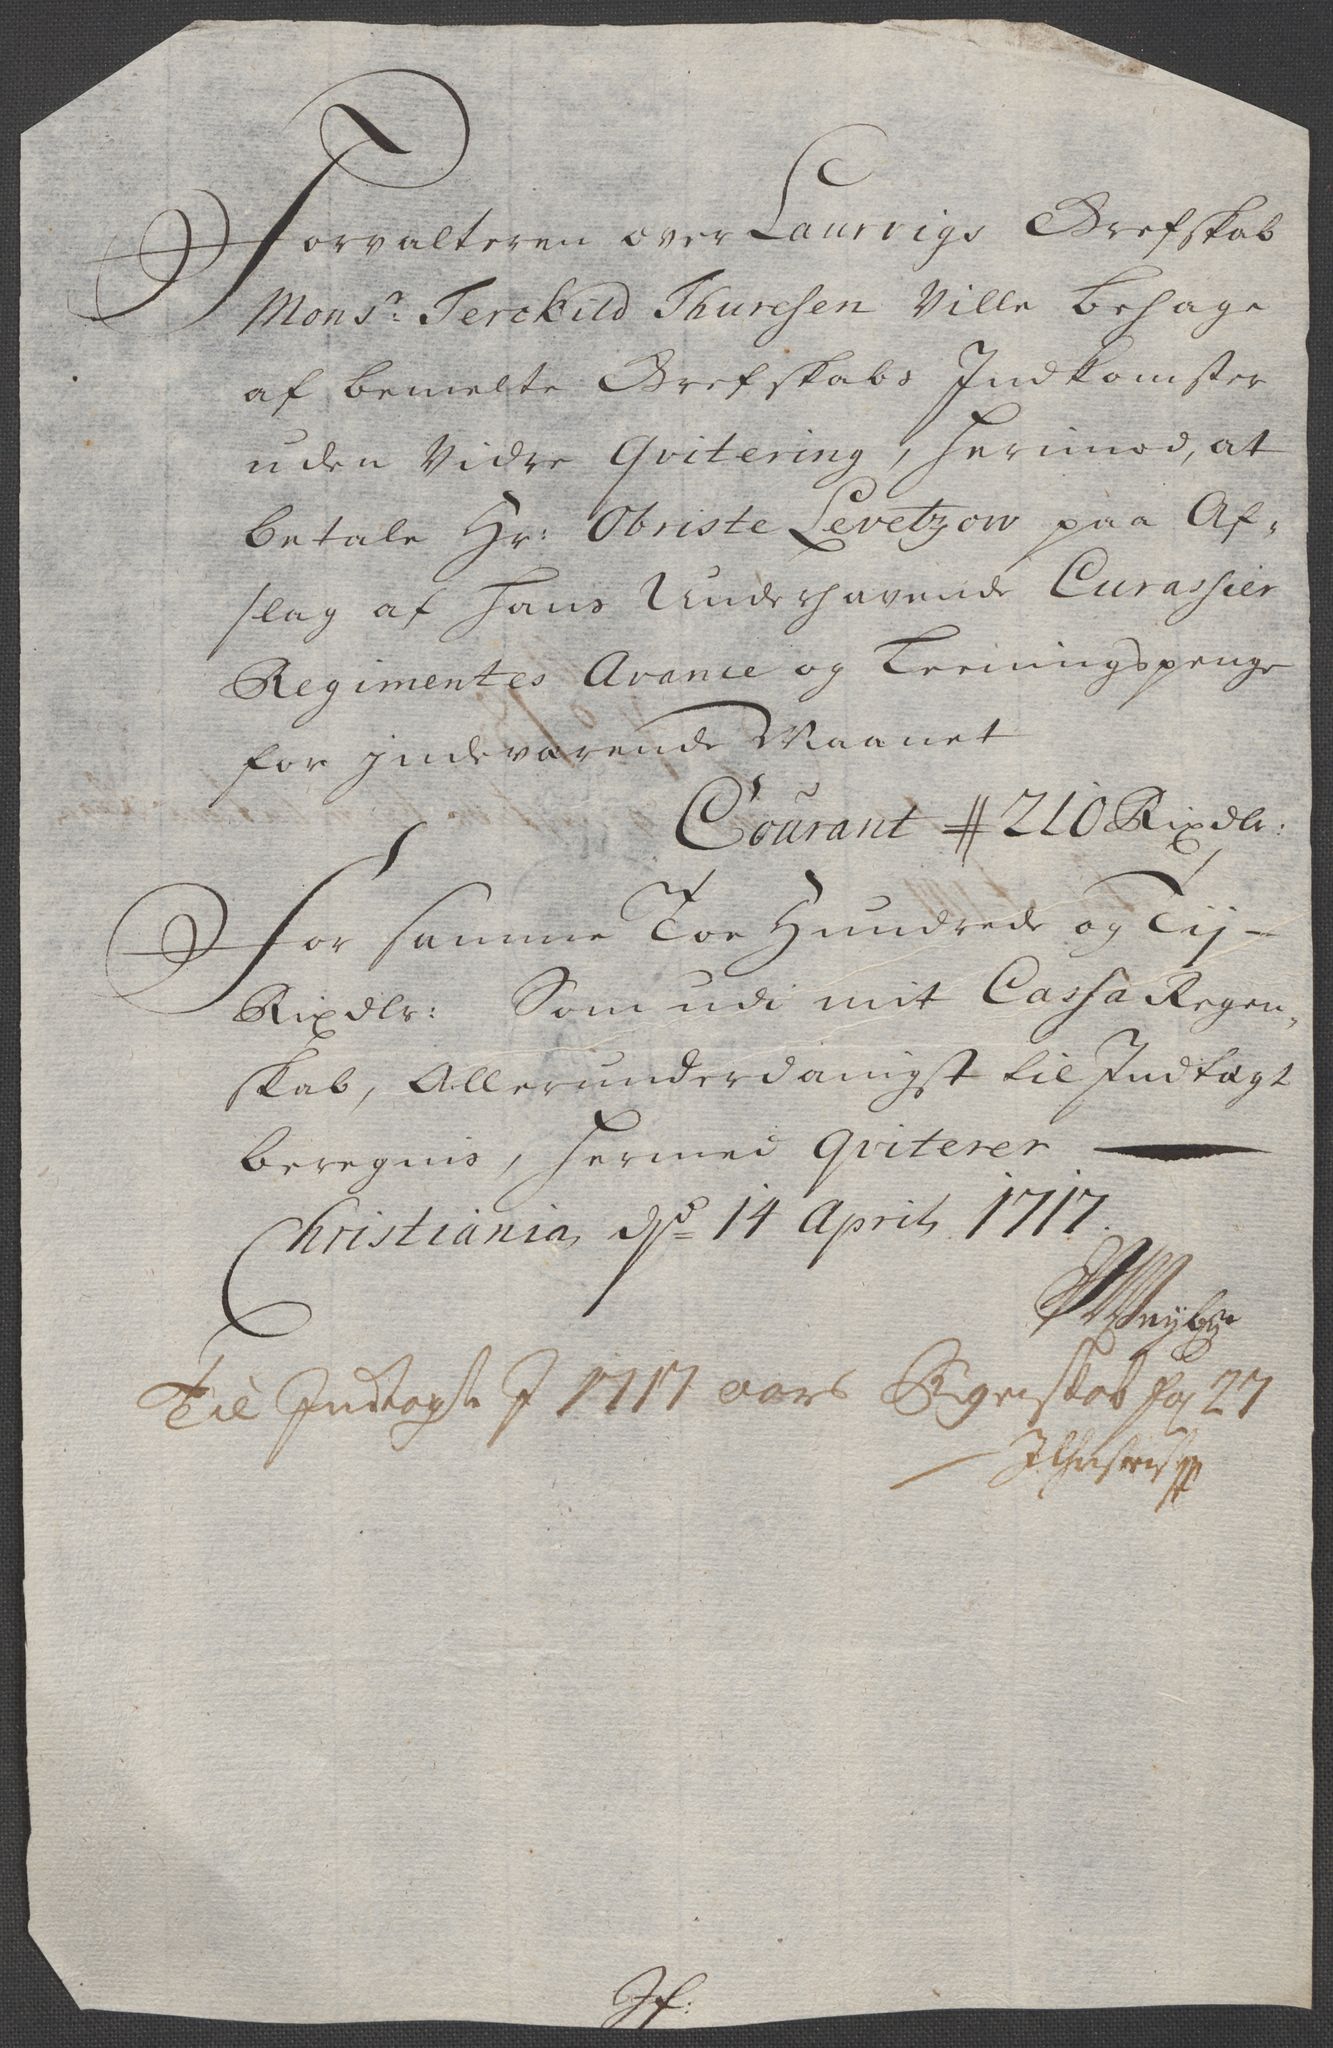 Forvalteren over Laurvigs Grefskab
Monsr: Terckild Thuresen Ville behage
af bemelte Grefskabs Indkomster
uden Vidre Qvitering, herimod, at
betale Hr: Obriste Levetzow paa Af-
slag af hans Underhavende Curassier
Regimentes Avance og Leeningspenge
for jndeværende Maanet
Courant # 210 Rixdlr:
For samme Toe Hundrede og Tij
Rixdlr: Som udi mit Cassa Regen-
skab, Allerunderdanigst til Indtægt
beregnis, hermed Qviterer
Christiania dend 14 April 1717.
Til Indtægt I 1717 aars Regenskab pag 27